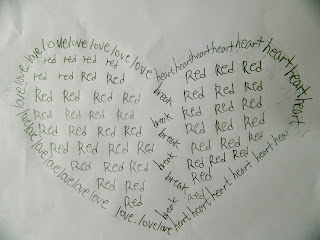 love love love love love love love love
heart heart heart heart heart heart heart heart
red red red red
red red Red Red
Red Red Red Red
Red Red Red Red
Red Red Red Red
Red Red Red Red
Red Red Red
Red Red
Red
break
break
break
break
break
break
Red Red Red Red
Red Red Red Red
Red Red Red Red
Red Red Red Red
Red Red Red Red
Red Red Red Red
Red
red
love love love love love love love love love
heart heart heart heart heart heart